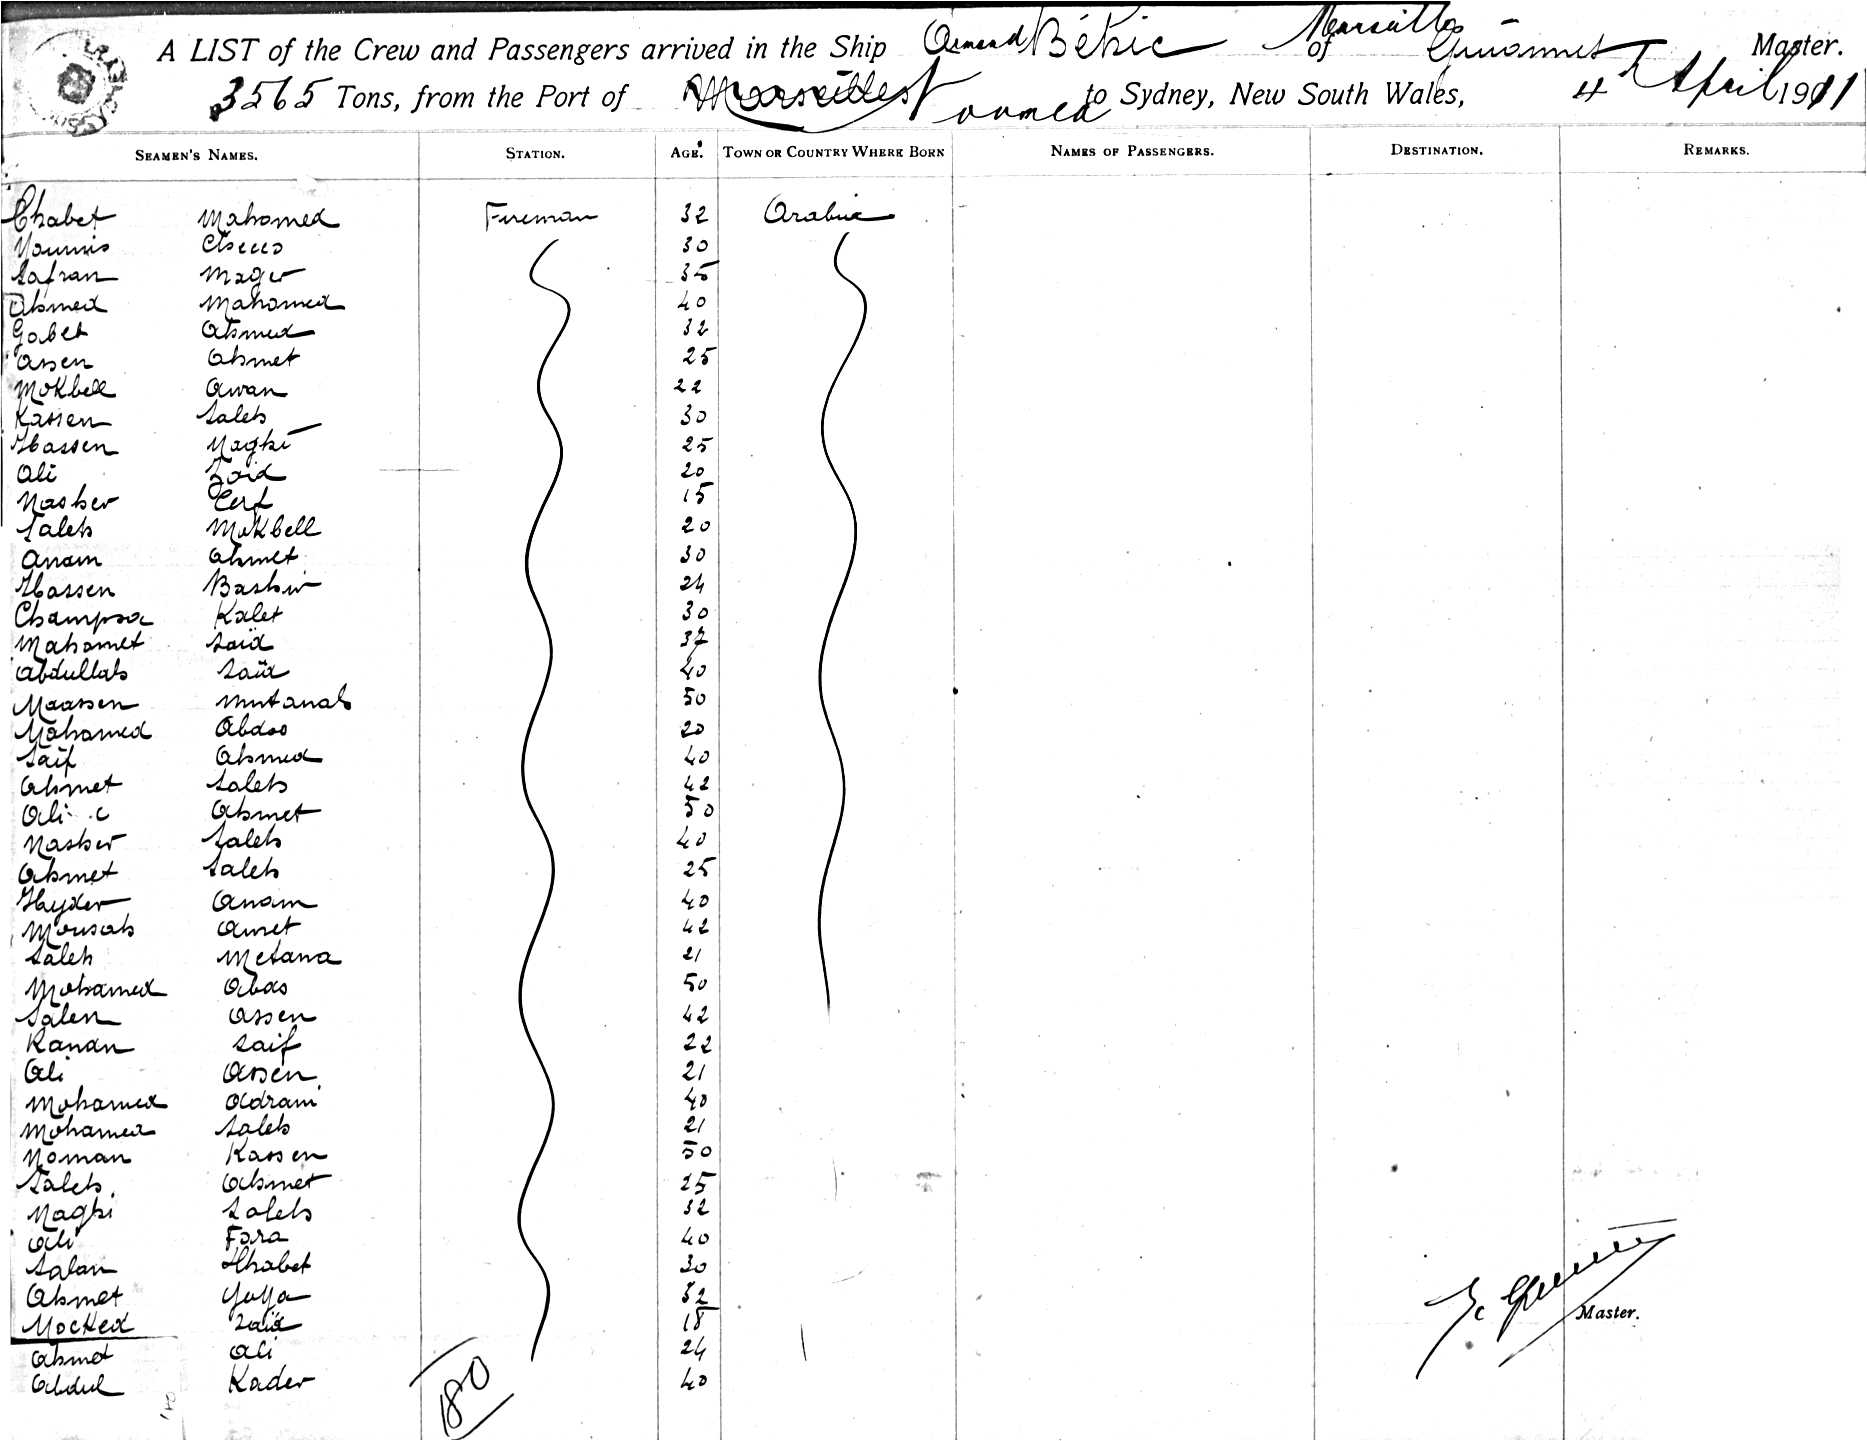 A LIST of the Crew and Passengers arrived in the Ship Armand Béhic of Marseilles Master.
3565 Tons, from the Port of Marseilles Noumea to Sydney, New South Wales, 4th April 1911
SEAMEN'S NAMES. STATION. AGE. TOWN OR COUNTRY WHERE BORN NAMES OF PASSENGERS. DESTINATION. REMARKS.
Chabet Mahomed Fireman 32 Arabia
Younis 30
Safran Mager 35
Ahmed Mahomed 40
Gobet Ahmed 32
Assen Ahmet 25
Mokbell Awan 22
Kassen Saleh 30
Hassen Naghi 25
Ali Zaid 20
Nasher 15
Saleh Mokbell 20
Anam Ahmet 30
Hassen Bashir 24
Champsa Kalet 30
Mahomet Said 37
Abdullah Saïd 40
Maassen Mutanah 50
Mahomed Abdoo 20
Saïf Ahmed 40
Ahmet Saleh 42
Ali Ahmet 50
Nasher Saleh 40
Ahmet Saleh 25
Hyder Anam 40
Mousah Amet 42
Saleh Metana 21
Mohamed Abas 50
Salen Assen 42
Kanan Saif 22
Ali Assen 21
Mohamed Adrami 40
Mohamed Saleh 21
Noman Kassen 50
Saleh Ahmet 25
Naghi Saleh 32
Ali Fara 40
Salan Thabet 30
Ahmet Yaya 32
Mocked Zaïd 18
Master.
Ahmet Ali 24
Abdul Kader 40
180